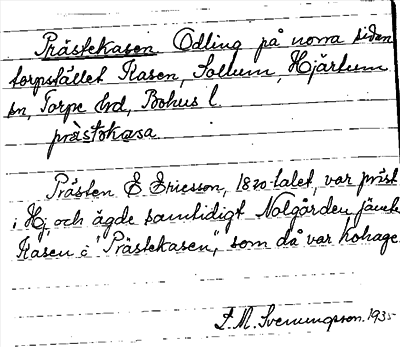 Prästekasen. Odling på norra sidan
torpstället Kasen, Sollum, Hjärtum
sn, Torpe hd, Bohus l.
prästokasa
Prästen E Ericsson, 1820-talet, var präst
i Hj. och ägde samtidigt Nolgården jämte
Kasen o "Prästekasen", som då var kohage.
L.M. Svenungsson. 1935